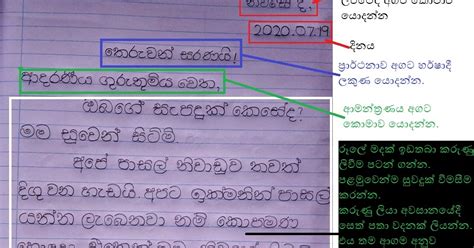 නිවසේ දී,
ලිපිනයේ අගට කොමාව
යොදන්න
2020.07.19
දිනය
තෙරුවන් සරණයි!
ප්‍රාර්ථනාව අගට හර්ෂාදී
ලකුණ යොදන්න.
ආදරණීය ගුරුතුමිය වෙත,
ආමන්ත්‍රණය අගට
කොමාව යොදන්න.
ඔබගේ සැපදුක් කෙසේද?
මම සුවෙන් සිටිමි
අපේ පාසල් නිවාඩුව තවත්
දිගු වන හැඩයි. අපට ඉක්මනින් පාසල්
යන්න ලැබෙනවා නම් කොපමණ
රූලේ මදක් ඉඩතබා කරුණු
ලිවීම පටන් ගන්න.
පළමුවෙන්ම සුවදුක් විමසීම
කරන්න.
කරුණු ලියා අවසානයේදී
සෙත් පතා වදනක් ලියන්න.
එය තම ආගම අනුව